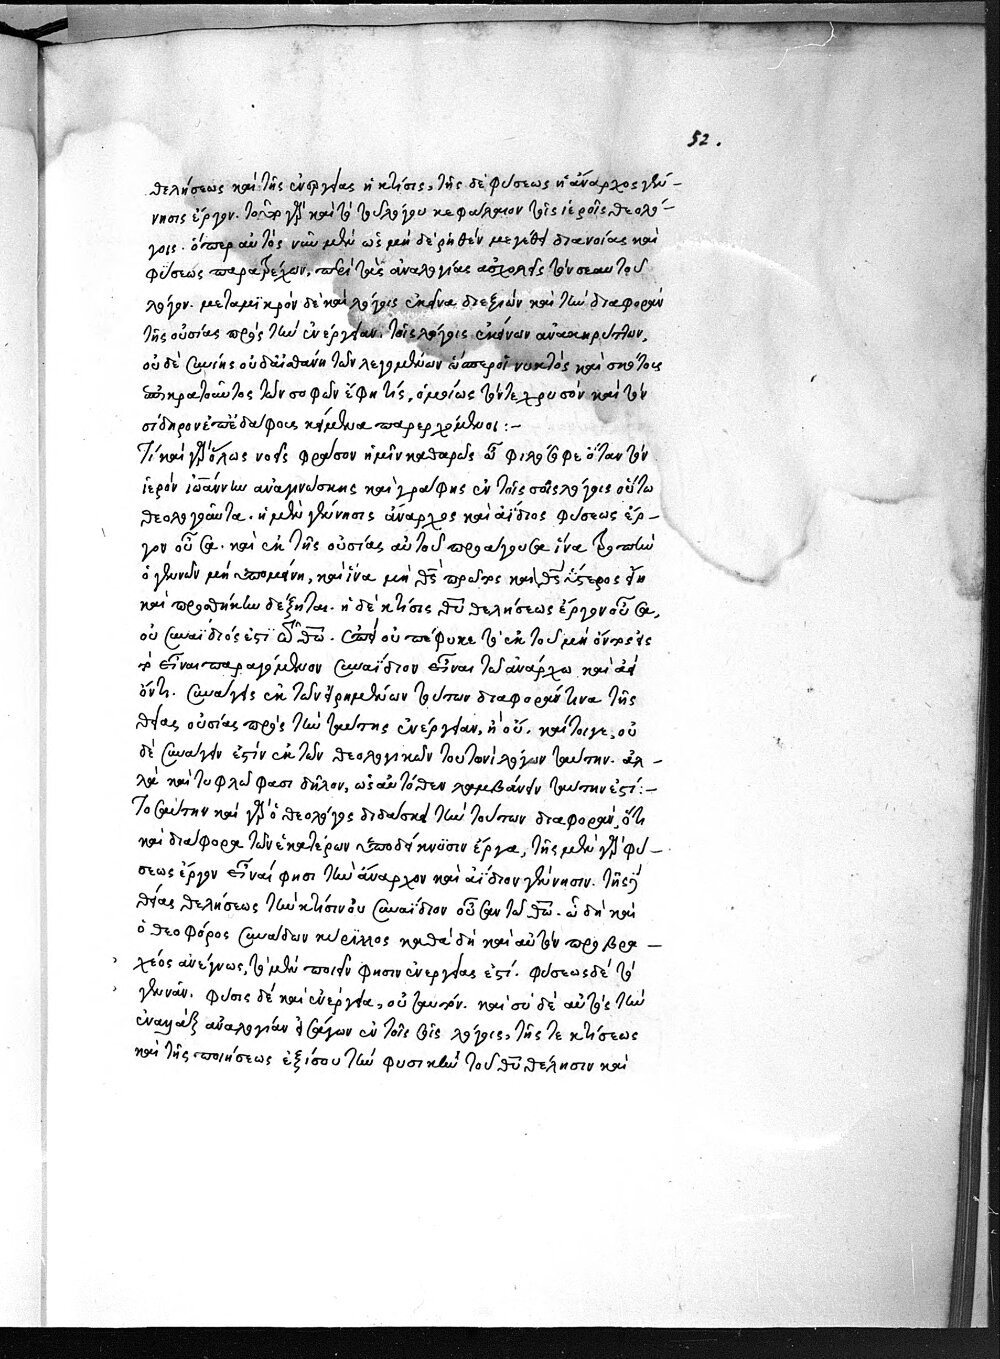 52.
θελήσεως καὶ τῆς ἐνεργείας ἡ κτίσις, τῆς δὲ φύσεως ἡ ἄναρχος γέν-
νησις ἔργον. τοῦτο γὰρ καὶ τοῦ λόγου κεφάλαιον τοῖς ἱεροῖς θεολό-
γοις. ὅπερ αὐτὸς νῦν μὲν ὡς μὴ δὲ ῥηθὲν μεγέθει διανοίας καὶ
φύσεως παρατρέχων, περὶ τὰς ἀναλογίας ἀσχολεῖς τὸν σεαυτοῦ
λόγον. μετὰ μικρὸν δὲ καὶ λόγοις ἐκεῖνα διεξιὼν καὶ τὴν διαφορὰν
τῆς οὐσίας πρὸς τὴν ἐνέργειαν, τοῖς λόγοις ἐκείνων ἀνακηρύττων,
οὐδὲ συνιεὶς οὐδ' αἰσθάνῃ τῶν λεγομένων ὥσπερ οἱ νυκτὸς καὶ σκότους
ἐπικρατοῦντος τῶν σοφῶν ἔφη τίς, ὁμοίως τόν τε χρυσὸν καὶ τὸν
σίδηρον ἐπ' ἐδάφους κείμενα παρερχόμενοι:-
Τί καὶ γὰρ ὅλως νοεῖς φράσον ἡμῖν καθαρῶς ὦ φιλόσοφε ὅταν τὸν
ἱερὸν ἰωάννην ἀναγινώσκῃς καὶ γράφῃς ἐν τοῖς σοῖς λόγοις οὕτω
θεολογοῦντα. ἡ μὲν γέννησις ἄναρχος καὶ ἀΐδιος φύσεως ἔρ-
γον οὖσα. καὶ ἐκ τῆς οὐσίας αὐτοῦ προάγουσα ἵνα τροπὴν
ὁ γεννῶν μὴ ὑπομείνῃ, καὶ ἵνα μὴ θεὸς πρῶτος καὶ θεὸς ὕστερος εἴη
καὶ προσθήκην δέξηται. ἡ δὲ κτίσις θεοῦ θελήσεως ἔργον οὖσα,
οὐ συναΐδιός ἐστι τῷ θεῷ. ἐπεὶ οὐ πέφυκε τὸ ἐκ τοῦ μὴ ὄντος εἰς
τὸ εἶναι παραγόμενον συναΐδιον εἶναι τῷ ἀνάρχῳ καὶ ἀεὶ
ὄντι. συνάγεις ἐκ τῶν εἰρημένων τούτων διαφοράν τινα τῆς
θείας οὐσίας πρὸς τὴν ταύτης ἐνέργειαν, ἢ οὔ. καίτοιγε, οὐ
δὲ συνάγειν ἐστὶν ἐκ τῶν θεολογικῶν τουτωνὶ λόγων ταύτην. ἀλ-
λὰ καὶ τυφλῷ φασι δῆλον, ὡς αὐτόθεν λαμβάνειν ταύτην ἐστί:-
Τοσαύτην καὶ γὰρ ὁ θεολόγος διδάσκει τὴν τούτων διαφορὰν, ὅτι
καὶ διάφορα τῶν ἑκατέρων ὑποδείκνυσιν ἔργα, τῆς μὲν γὰρ φύ-
σεως ἔργον εἶναί φησι τὴν ἄναρχον καὶ ἀΐδιον γέννησιν. τῆς δὲ
θείας θελήσεως τὴν κτίσιν οὐ συναΐδιον οὖσαν τῷ θεῷ. ᾧ δὴ καὶ
ὁ θεοφόρος συνᾴδων κύριλλος καθὰ δὴ καὶ αὐτὸν πρὸ βρα-
χέος ἀνέγνως, τὸ μὲν ποιεῖν φησιν ἐνεργείας ἐστί. φύσεως δὲ τὸ
γεννᾶν. φύσις δὲ καὶ ἐνέργεια, οὐ ταυτόν. καὶ σὺ δὲ αὐτὸς τὴν
ἐναλλὰξ ἀναλογίαν εἰσάγων ἐν τοῖς σοῖς λόγοις, τῆς τε κτίσεως
καὶ τῆς ποιήσεως ἐξίσου τὴν φυσικὴν τοῦ θεοῦ θέλησιν καὶ